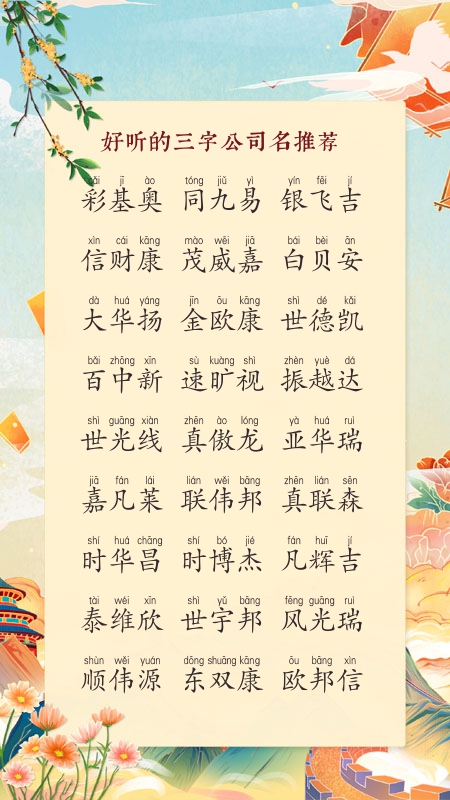 好听的三字公司名推荐
cǎi jī ào tóng jiǔ yì yín fēi jí
彩基奥 同九易 银飞吉
xìn cái kāng mào wēi jiā bái bèi ān
信财康 茂威嘉 白贝安
dà huá yáng jīn ōu kāng shì dé kǎi
大华扬 金欧康 世德凯
bǎi zhōng xīn sù kuàng shì zhèn yuè dá
百中新 速旷视 振越达
shì guāng xiàn zhēn ào lóng yà huá ruì
世光线 真傲龙 亚华瑞
jiā fán lái lián wěi bāng zhēn lián sēn
嘉凡莱 联伟邦 真联森
shí huá chāng shí bó jié fán huī jí
时华昌 时博杰 凡辉吉
tài wéi xīn shì yǔ bāng fēng guāng ruì
泰维欣 世宇邦 风光瑞
shùn wěi yuán dōng shuāng kāng ōu bāng xìn
顺伟源 东双康 欧邦信